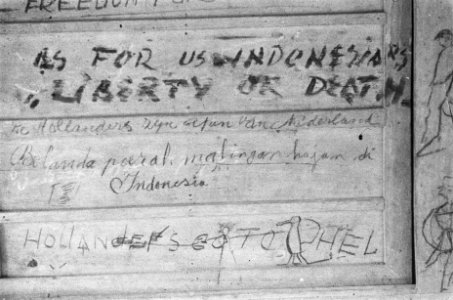 FREEDOM FOR
AS FOR US INDONESIANS
"LIBERTY OR DEATH
Hollanders zijn van Nederland
Belanda hajam di
Indonesia
HOLLANDERS GO TO HEL